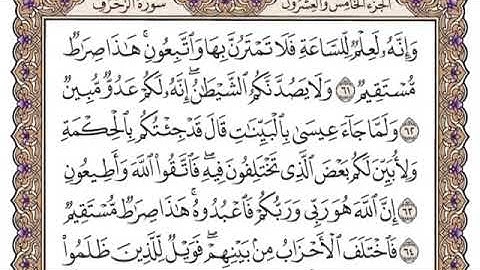 الجزء الخامس والعشرون سورة الزخرف
وَإِنَّهُۥ لَعِلْمٌ لِّلسَّاعَةِ فَلَا تَمْتَرُنَّ بِهَا وَٱتَّبِعُونِ ۚ هَـٰذَا صِرَٰطٌ
مُّسْتَقِيمٌ ٦١ وَلَا يَصُدَّنَّكُمُ ٱلشَّيْطَـٰنُ ۖ إِنَّهُۥ لَكُمْ عَدُوٌّ مُّبِينٌ
٦٢ وَلَمَّا جَآءَ عِيسَىٰ بِٱلْبَيِّنَـٰتِ قَالَ قَدْ جِئْتُكُم بِٱلْحِكْمَةِ
وَلِأُبَيِّنَ لَكُم بَعْضَ ٱلَّذِى تَخْتَلِفُونَ فِيهِ ۖ فَٱتَّقُوا۟ ٱللَّهَ وَأَطِيعُونِ
٦٣ إِنَّ ٱللَّهَ هُوَ رَبِّى وَرَبُّكُمْ فَٱعْبُدُوهُ ۚ هَـٰذَا صِرَٰطٌ مُّسْتَقِيمٌ
٦٤ فَٱخْتَلَفَ ٱلْأَحْزَابُ مِنۢ بَيْنِهِمْ ۖ فَوَيْلٌ لِّلَّذِينَ ظَلَمُوا۟